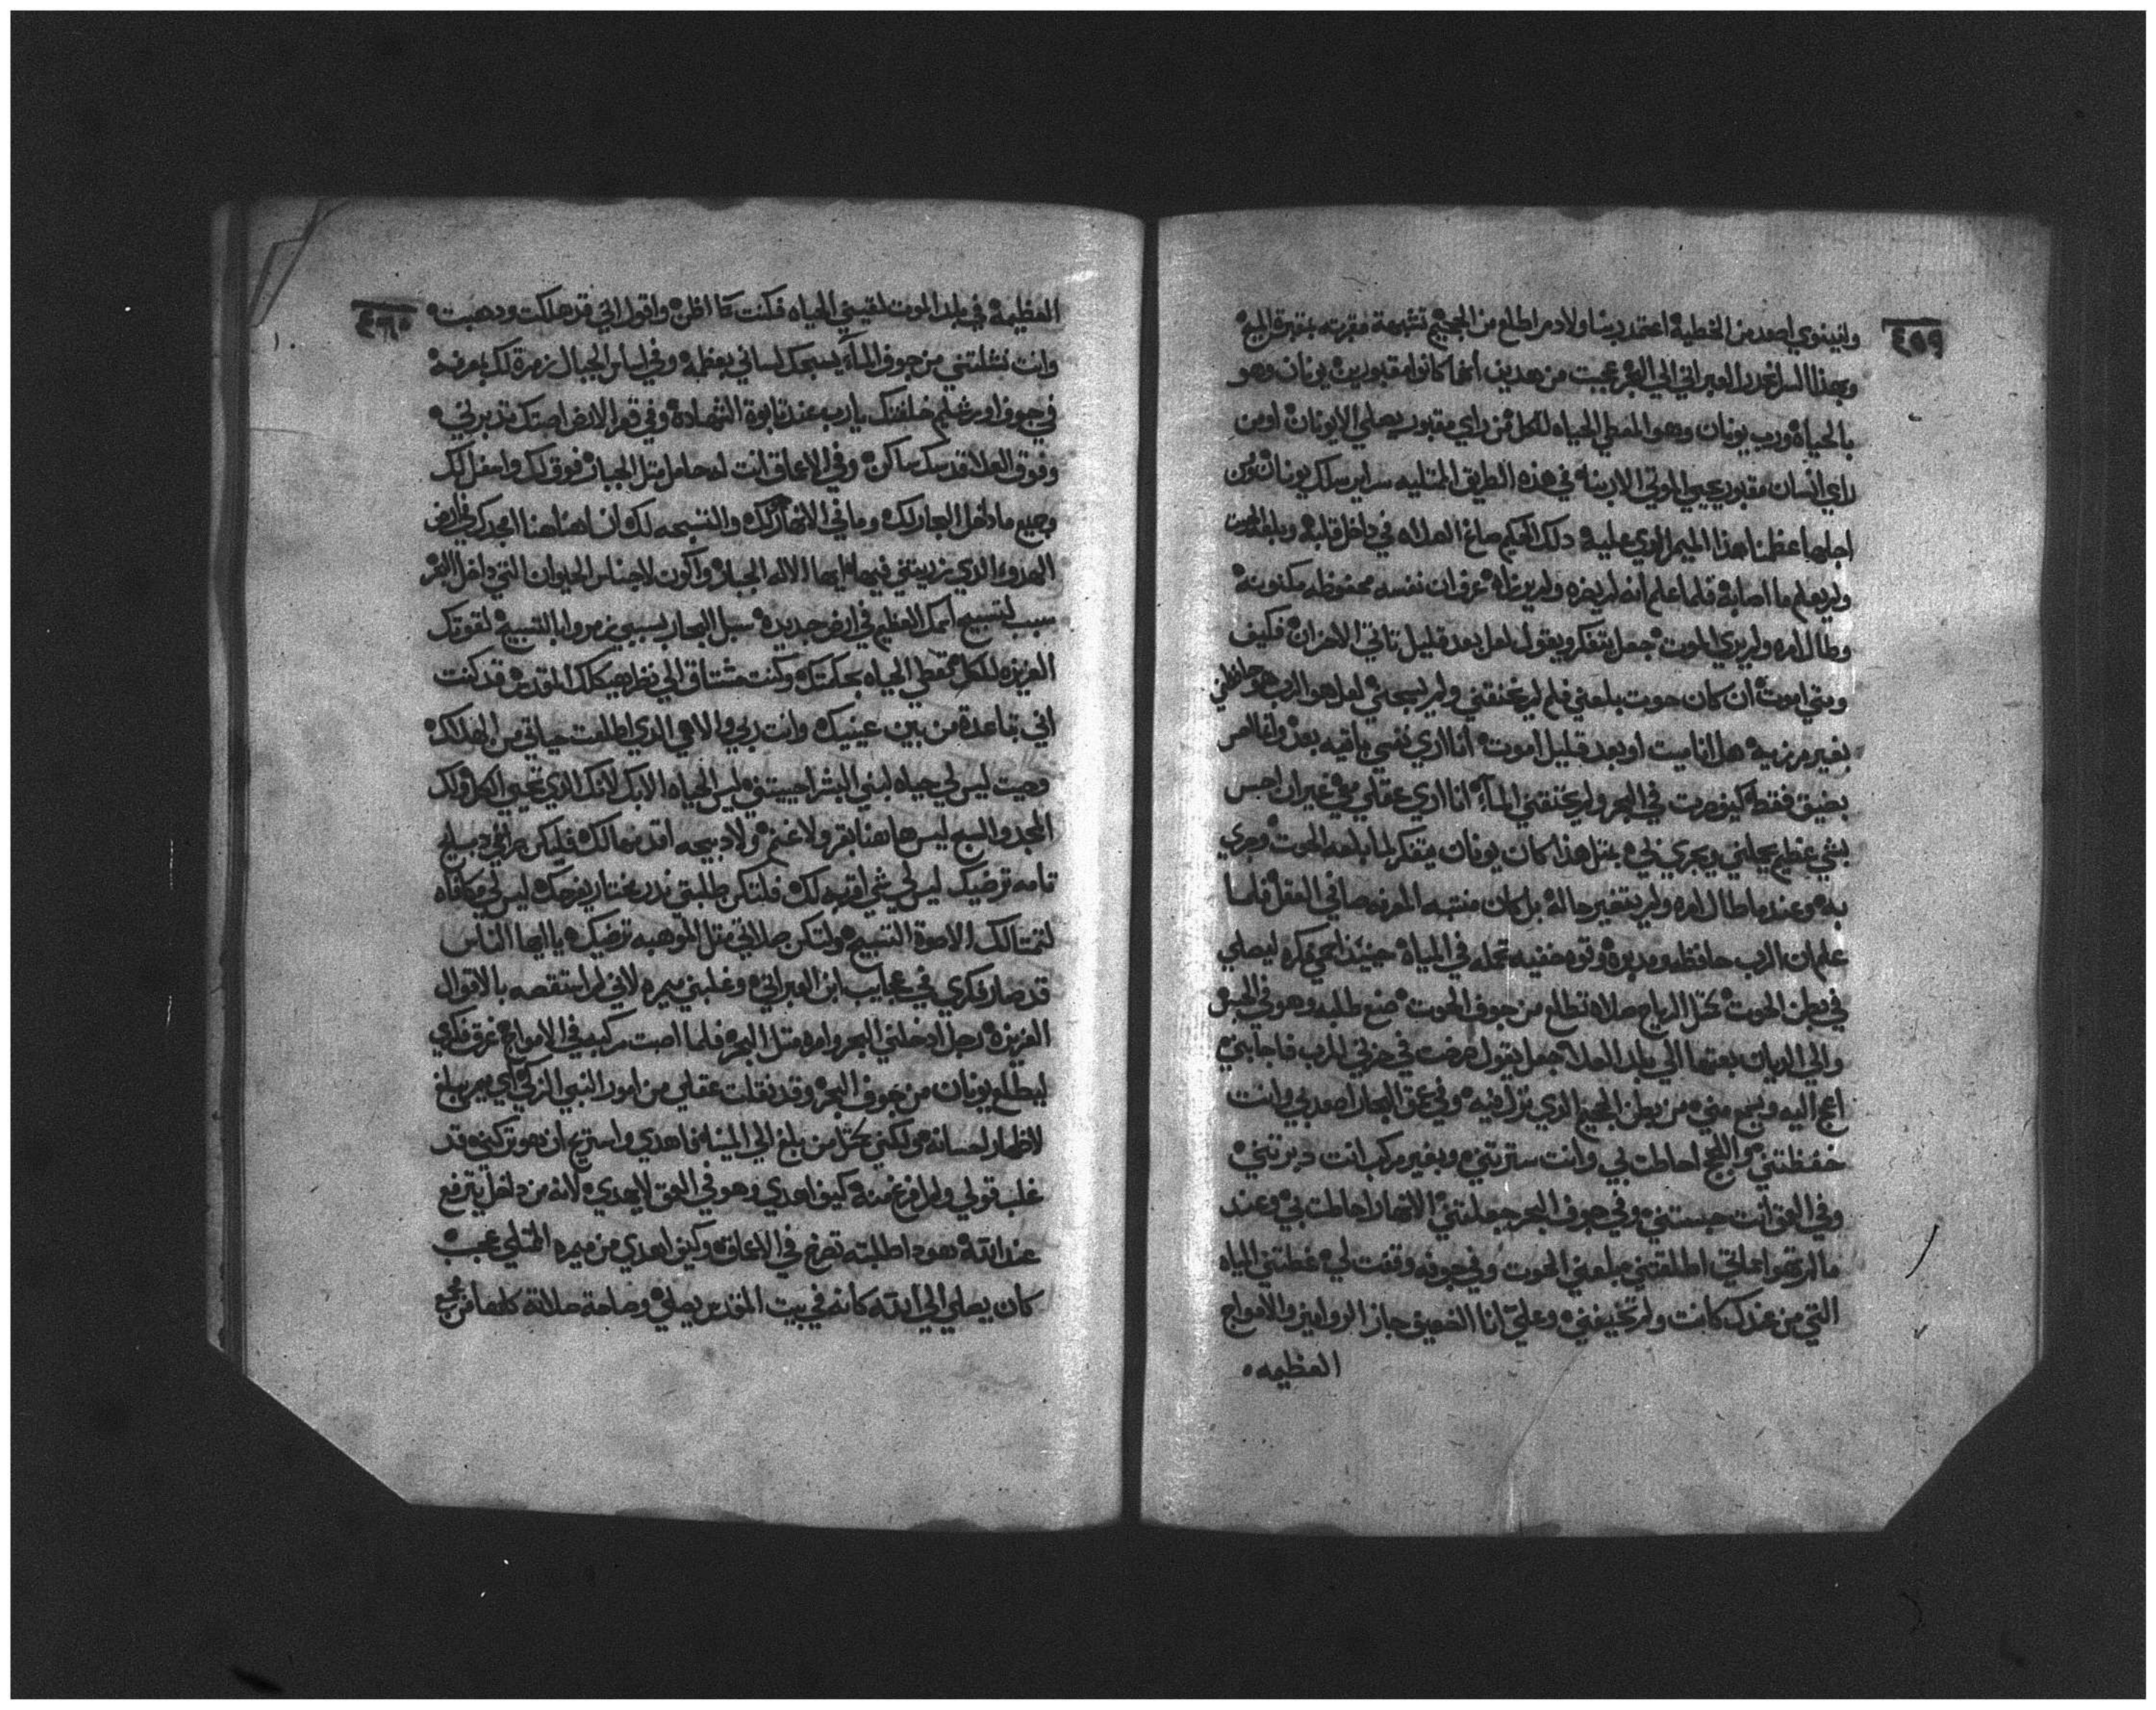 ٤٥٩
ولنينوي اصعد من الخطية اعتمد ربنا ولادم اطلع من الجحيم تشبهة مقبرته بمقبرة المسيح
وبهذا السر انحدر العبراني الي البحر عجيب من هدين انهما كانوا مقبورين يونان وهو
بالحياه ورب يونان وهو المعطي الحياه للكل من راي مقبور يصلي الا يونان اومن
راي انسان مقبور يحيي الموتي الا ربنا في هذه الطريق الممتليه سراير سلك يونان ومن
اجلها عظمنا هذا الميمر الدي عليه دلك الحكيم صاغ العداله في داخل قلبه وبلعه الحوت
ولم يعلم ما اصابه فلما علم انه لم يضره ولم يبطله عرف ان نفسه محفوظه مكنونة
وطال امره ولم يري الموت جعل يتفكر ويقول لعل بعد قليل تاتي الاحزان فكيف
ومتي اموت ان كان حوت بلعني فلم لم يخنقني ولم يسحقني لعل هو الرب هو حافظني
بغير مرزيه هل انا ميت او بعد قليل اموت انا اري نفسي باقيه بعد وانفاس
بضيق فقط كيف صرت في البحر ولم يخنقني الماء انا اري عقلي معي غير ان احس
بشي عظيم يحملني ويجري بي بمثل هذا كان يونان يتفكر لما بلعه الحوت وجري
به وعندما طال امره ولم يتغير حاله بل كان منتبه المعرفه صافي العقل فلما
علم ان الرب حافظه ومدبره وقوه خفيه تحمله في المياه حينئذ احمي فكره ليصلي
في بطن الحوت بحبل الرياح صلاه تطلع من جوف الحوت صنع طلبه وهو في الحبس
والي الديان بعتها الي بلد العدله جعل يقول صرخت في حزني للرب فاجابني
اعج اليه ويسمع مني من بطن الجحيم الدي نزل فيه وفي عمق البحار اصعدني وانت
حفظتني واللجج احاطت بي وانت سترتني وبغير مركب انت دبرتني
وفي العمق انت حبستني وفي جوف البحر جعلتني الانهار احاطت بي وعند
ما لم تهوا علي اطلقتني بلعني الحوت وفي جوفه وقفت لي غطتني المياه
التي من عندك كانت ولم تخيفني وعلي انا الضعيف جاز الزوابع والامواج
العظيمه
٤٦٠
العظيمة في بلد الموت لقيني الحياه فكنت كما اظن واقول اني قد هلكت ودهبت
وانت نشلتني من جوف الماء يسبحك لساني بعظمه وفي اساس الجبال زمرة لك بمعرفه
في جوف اورشليم خلفتك يارب عند تابوة الشهادة وفي قعر الارض اصبتك تدبرني
وفوق العلا قدسك ساكن وفي الاعماق انت لها حامل مثل الجبار فوق لك واسفل لك
وجميع ما داخل البحار لك وما في الانهار لك والتسبحه لك ان اهنا هنا امجدك في ارض
الهدوء الدي رزيتني فيها ايها الاله الجبار واكون لاجناس الحيوان التي داخل البحر
سبب لتسبيح اسمك العظيم في ارض جديدة سبل البحار بسببي يزمروا بالتسبيح لقوتك
العزيزه للكل تعطي الحياه بحكمتك وكنت مشتاق الي نظر هيكلك المقدس قد كنت
اني تباعدة من بين عينيك وانت ربي والاهي الدي اطلعت حياتي من الهلاك
وحيت ليس لي حياه لبني البشر احييتني ليس الحياه الا بك لانك الدي تحيي الكل ولك
المجد والتسبيح ليس هاهنا بقر ولا غنم ولا دبيحه اقدمها لك فليكن مزاميري دبيحه
تامه ترضيك ليس لي شي اقربه لك فلتكن طلبتي ندر مختار يفرحك ليس لي مكافاه
لتمتالك الا صوة التسبيح ولتكن صلاتي مثل الموهبه ترضيك يا ايها الناس
قد صار فكري في عجايب ابن العبراتي وغلبني ميمره لاني لم استقصه بالاقوال
العزيزه لرجل ادخلني البحر وامره مثل البحر فلما اصبت مركبه في الامواج غرق فكري
ليطلع يونان من جوف البحر وقد نقلت عقلي من امور النبي الزكي اي ميمر يبلغ
لاظهار احسانه ولكني بحق من بلغ الي المينا فاهدي واستريح ان هو تركني قد
غلب قولي ولم افرغ منه كيف اهدي وهو في العمق لا يهدي لانه من داخل يترفع
عند الله هوذا طلبته تصرخ في الاعماق وكيف اهدي من ميمره الممتلي عجب
كان يصلي الي الله كانه في بيت المقدس يصلي وصاحة صلاته كلها من عجب